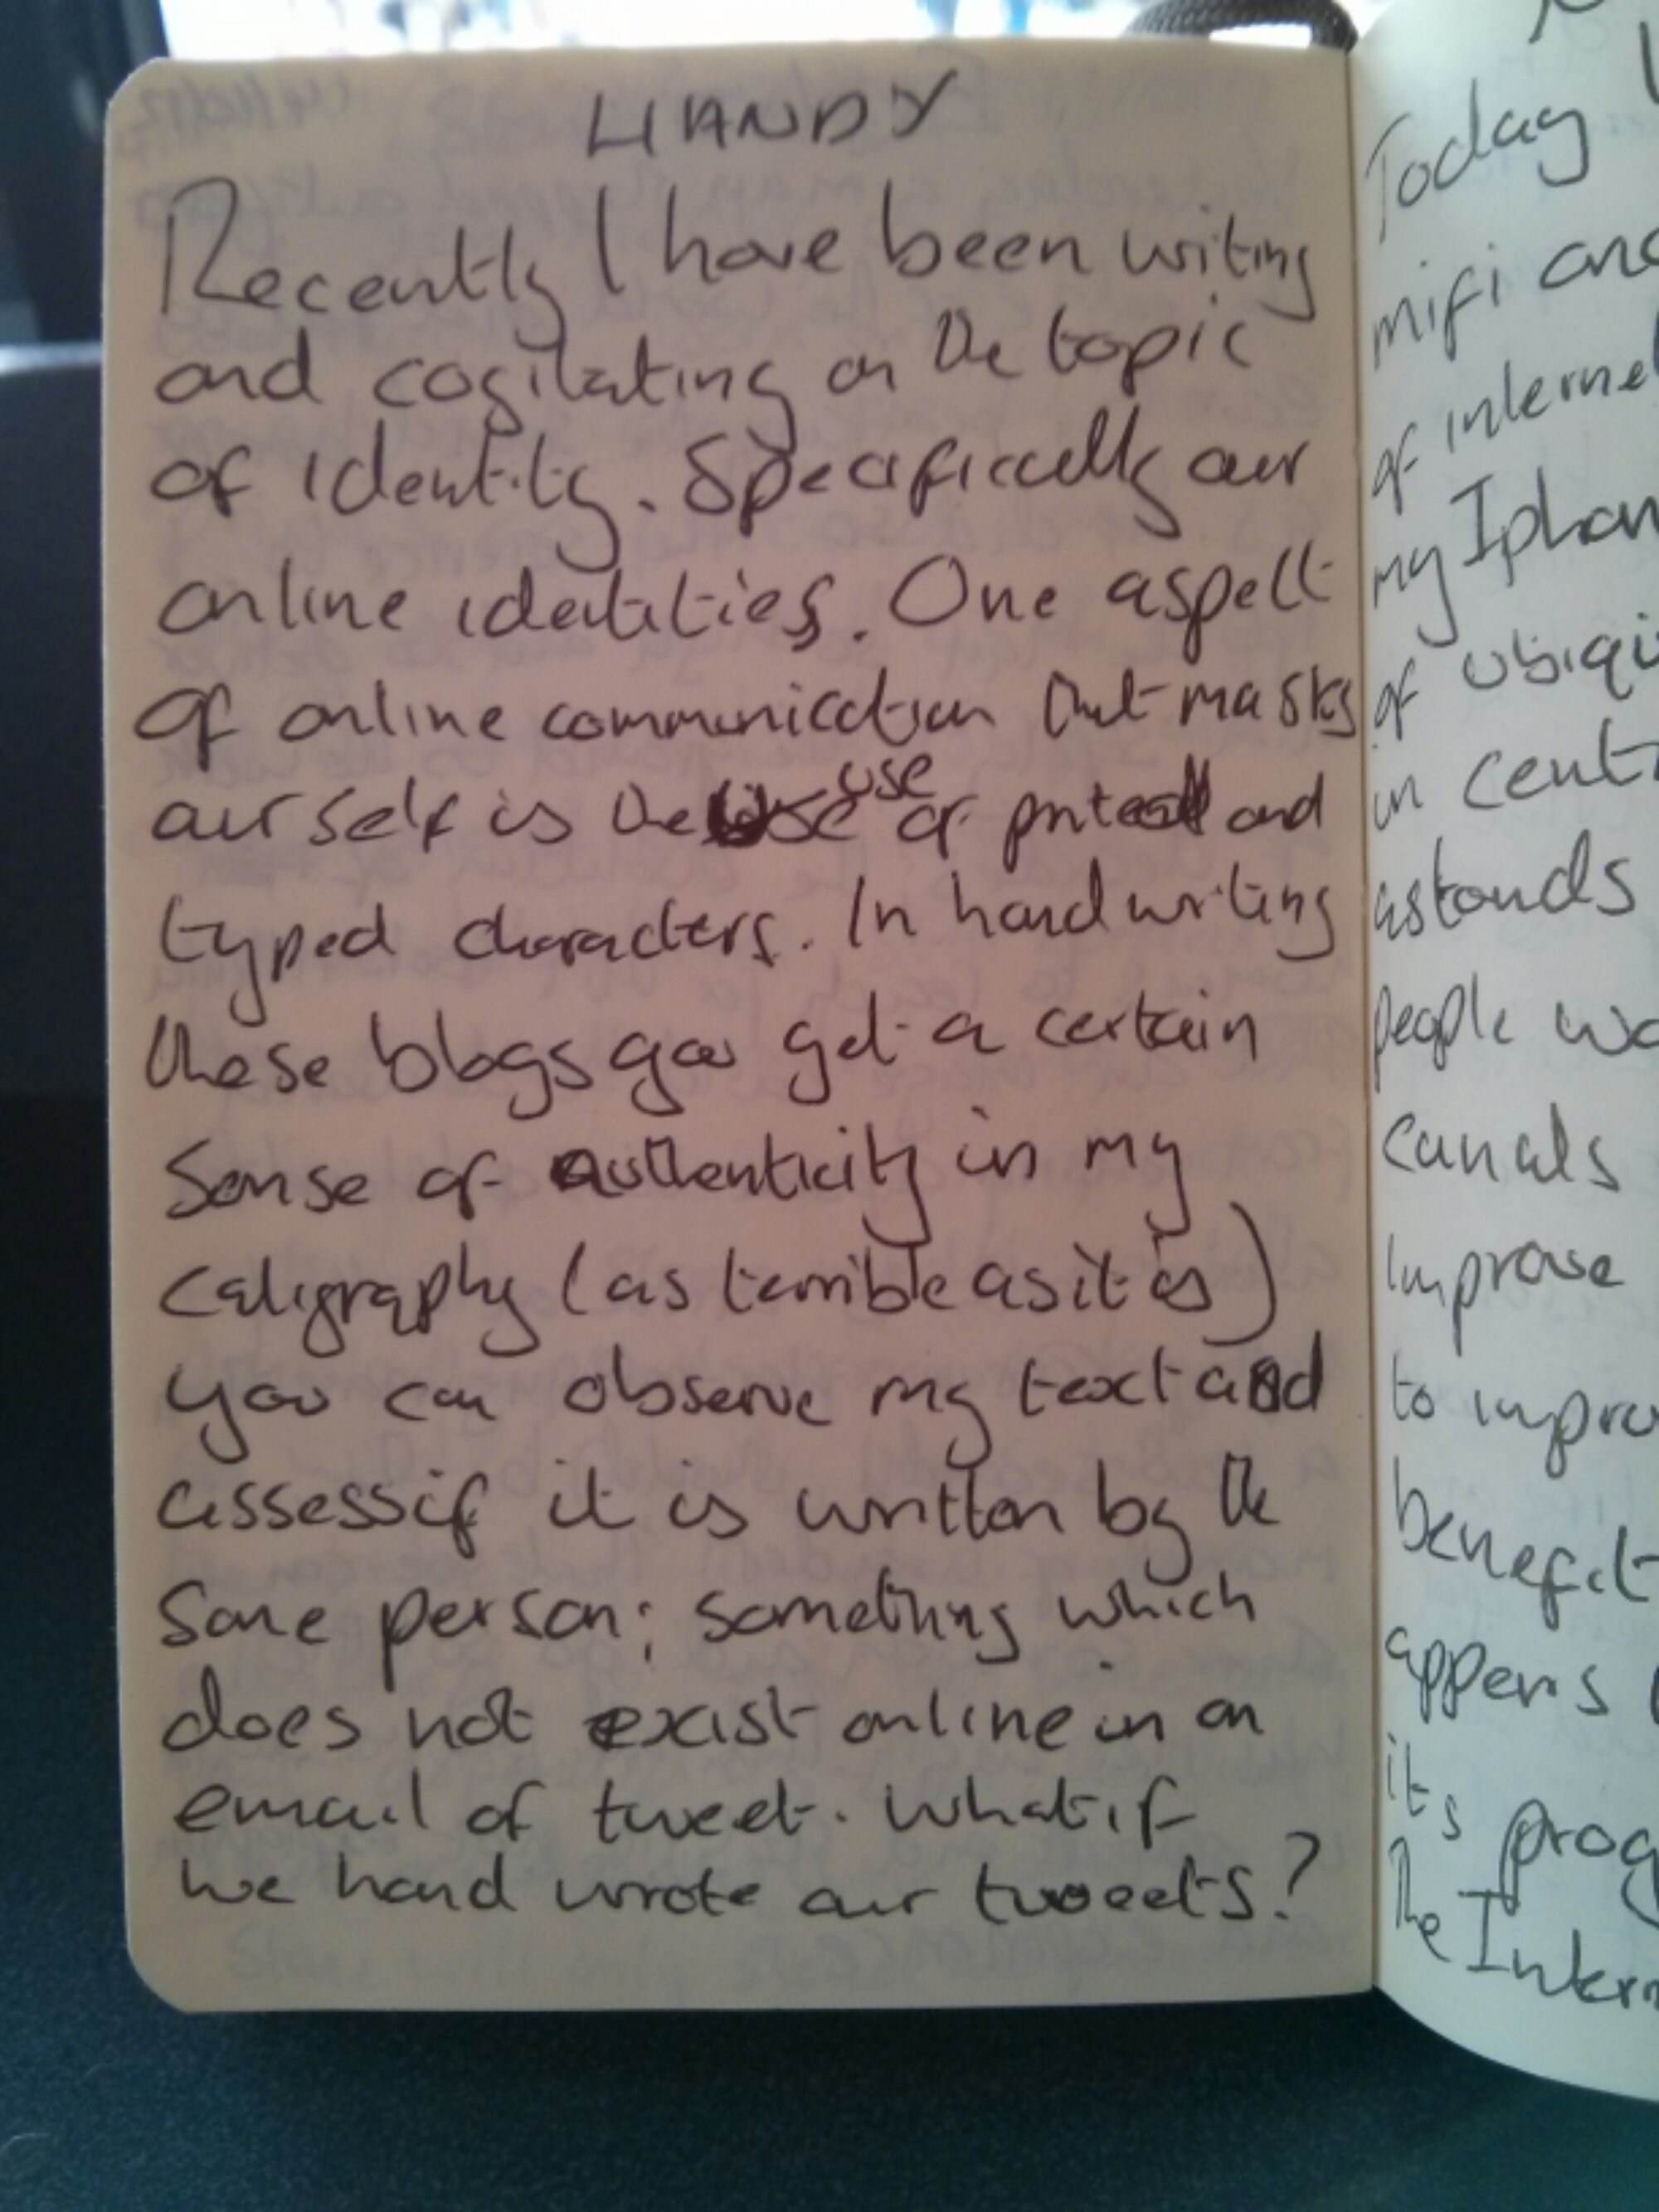 HANDY
Recently I have been writing
and cogitating on the topic
of identity. Specifically our
online identities. One aspect
of online communication that masks
our self is the use of and
typed characters. In handwriting
these blogs you get a certain
sense of authenticity in my
caligraphy (as terrible as it is)
you can observe my text and
assess if it is written by the
same person; something which
does not exist online in an
email of tweet. What if
we hand wrote our tweets?
Today
mifi and
of internet
my Iphon
of ubiqui
in cent
astounds
people wa
canals
improve
to impro
benefit
appers
its prog
the Intern